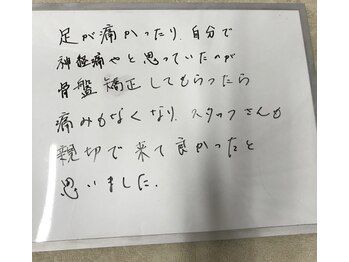 足が痛かったり、自分で
神経痛やと思っていたのが
骨盤矯正してもらったら
痛みもなくなり、スタッフさんも
親切で来て良かったと
思いました.